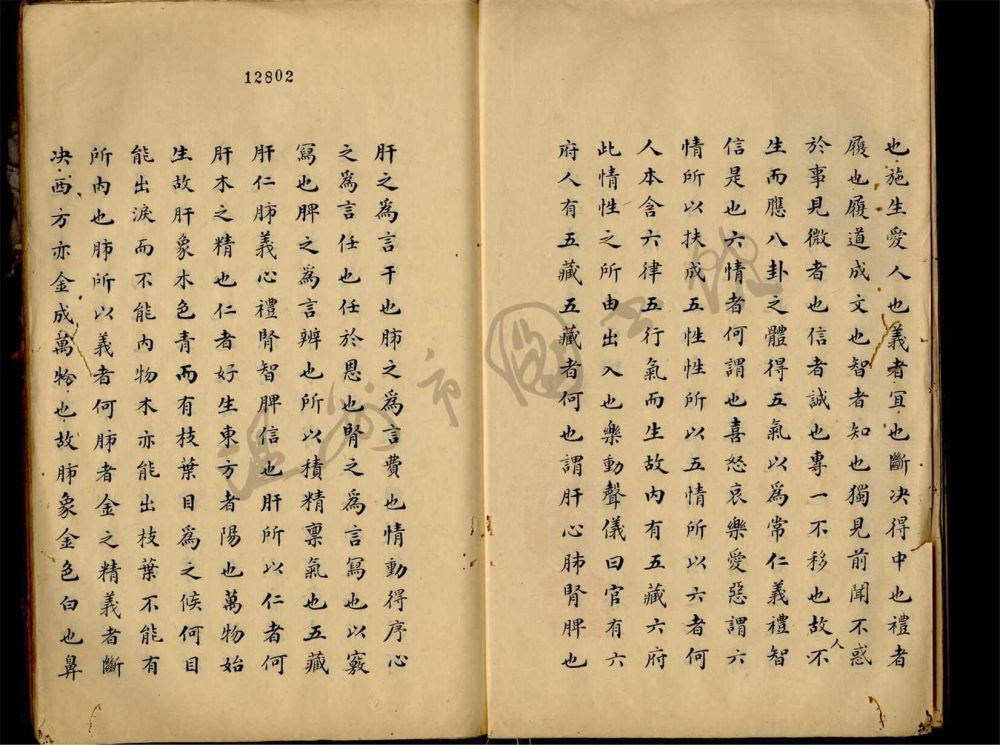 也施生愛人也義者宜也斷决得中也禮者
履也履道成文也智者知也獨見前聞不惑
於事見微者也信者誠也專一不移也故人不
生而應八卦之體得五氣以為常仁義禮智
信是也六情者何謂也喜怒哀樂愛惡謂六
情所以扶成五性性所以五情所以六者何
人本含六律五行氣而生故內有五藏六府
此情性之所由出入也樂動聲儀曰官有六
府人有五藏五藏者何也謂肝心肺腎脾也
12802
肝之為言干也肺之為言費也情動得序心
之為言任也任於恩也腎之為言寫也以竅
寫也脾之為言辨也所以積精稟氣也五藏
肝仁肺義心禮腎智脾信也肝所以仁者何
肝木之精也仁者好生東方者陽也萬物始
生故肝象木色青而有枝葉目為之候何目
能出淚而不能內物木亦能出枝葉不能有
所內也肺所以義者何肺者金之精義者斷
决西方亦金成萬物也故肺象金色白也鼻
溫州市圖書館